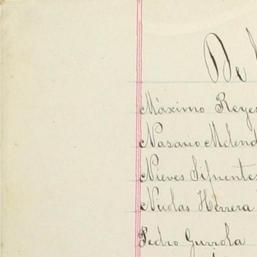 De
Máximo Reyes
Nasario Melend
Nieves Sifuentes
Nicolas Herrera
Pedro Gurrola